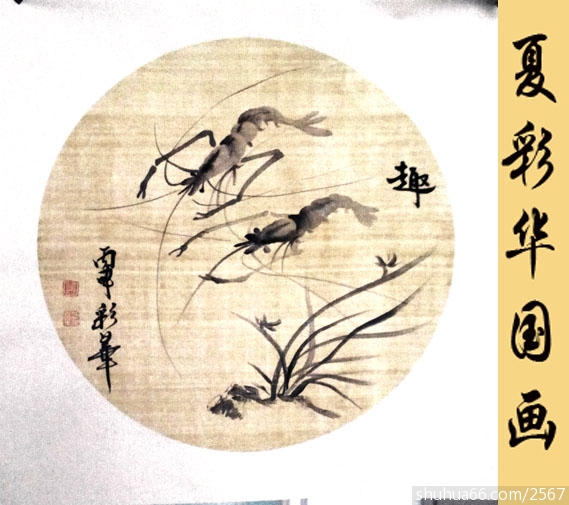 夏彩华国画
趣
夏彩華
shuhua66.com/2567